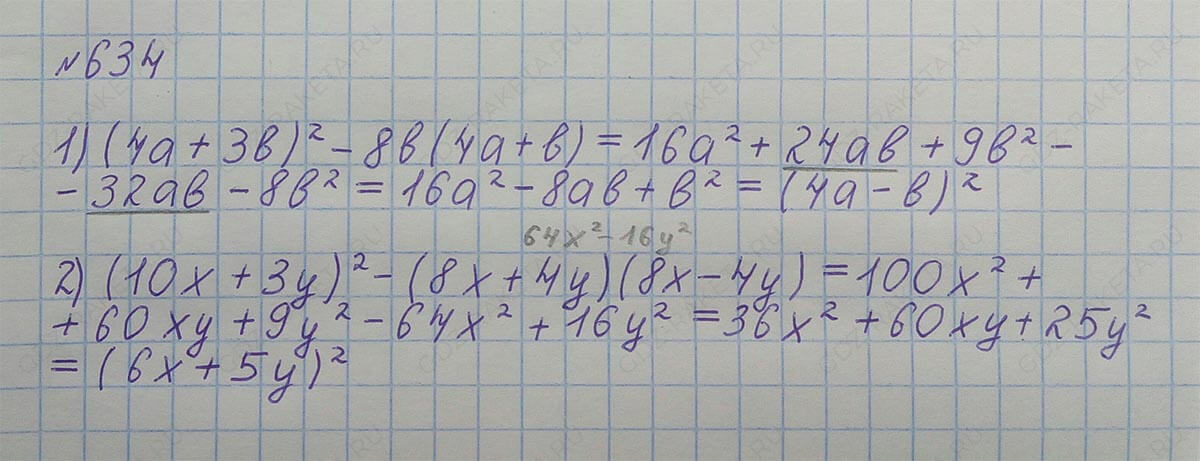 №634
1) (4a + 3b)² - 8b(4a + b) = 16a² + 24ab + 9b² -
- 32ab - 8b² = 16a² - 8ab + b² = (4a - b)²
64x² - 16y²
2) (10x + 3y)² - (8x + 4y)(8x - 4y) = 100x² +
+ 60xy + 9y² - 64x² + 16y² = 36x² + 60xy + 25y²
= (6x + 5y)²